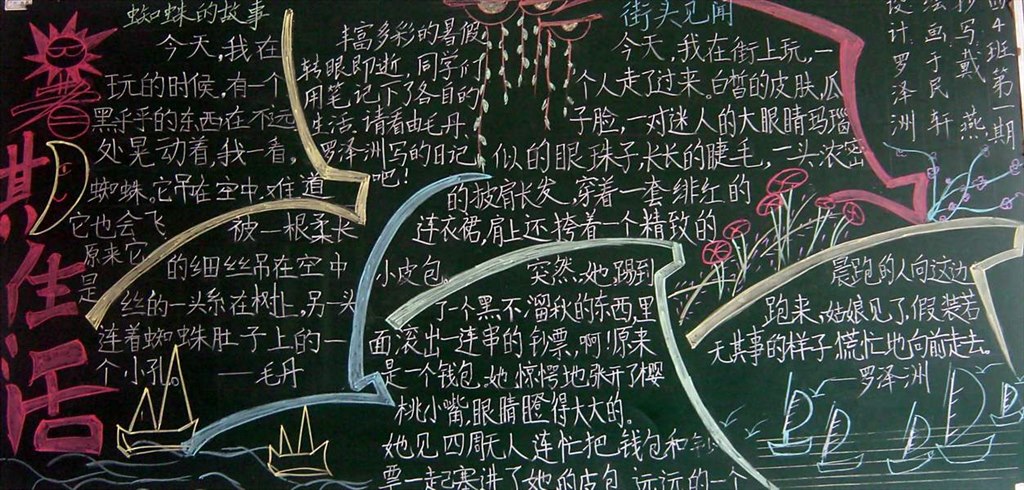 暑期生活
蜘蛛的故事
今天,我在
玩的时候,有一个
黑乎乎的东西在不远
处晃动着,我一看,
蜘蛛。它吊在空中,难道
它也会飞
原来它
是
被一根柔长
的细丝吊在空中
丝的一头系在树上,另一头
连着蜘蛛肚子上的一
个小孔。 —毛丹
丰富多彩的暑假
转眼即逝,同学们
用笔记下了各自的
生活,请看由毛丹、
罗泽洲写的日记
吧!
街头见闻
今天,我在街上玩,一
个人走了过来。白皙的皮肤,瓜
子脸,一对迷人的大眼睛玛瑙
似的眼珠子,长长的睫毛,一头浓密
的披肩长发,穿着一套绯红的
连衣裙,肩上还挎着一个精致的
小皮包。 突然,她踢到
了一个黑不溜秋的东西,里
面滚出一连串的钞票,啊!原来
是一个钱包,她惊愕地张开了樱
桃小嘴,眼睛瞪得大大的。
她见四周无人连忙把钱包和钞
票一起塞进了她的皮包 远远的一个
晨跑的人向这边
跑来,姑娘见了,假装若
无其事的样子,慌忙地向前走去。
—罗泽洲
四4班第一期
抄写 戴燕
绘画 于民轩
设计 罗泽洲